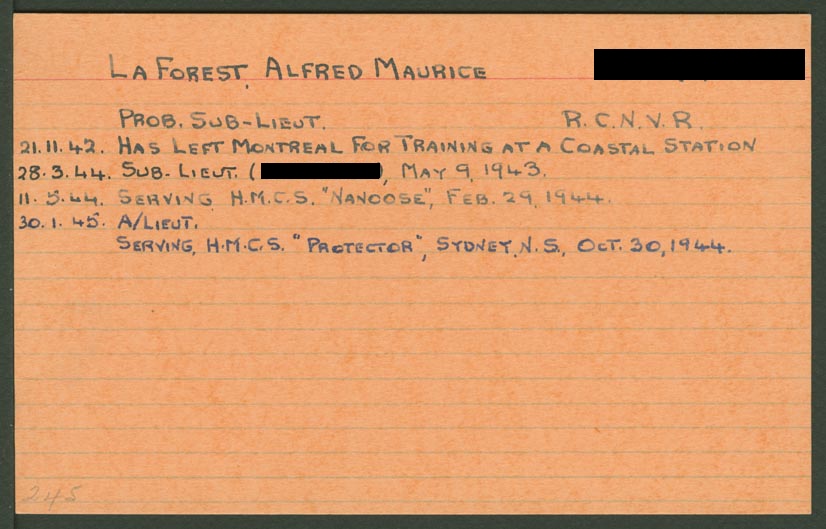 LA FOREST, ALFRED MAURICE
PROB. SUB-LIEUT. R.C.N.V.R.
21.11.42. HAS LEFT MONTREAL FOR TRAINING AT A COASTAL STATION
28.3.44. SUB-LIEUT. ( ), MAY 9, 1943.
11.5.44. SERVING H.M.C.S. "NANOOSE", FEB. 29, 1944.
30.1.45. A/LIEUT.
SERVING, H.M.C.S. "PROTECTOR", SYDNEY, N.S., OCT. 30, 1944.
245